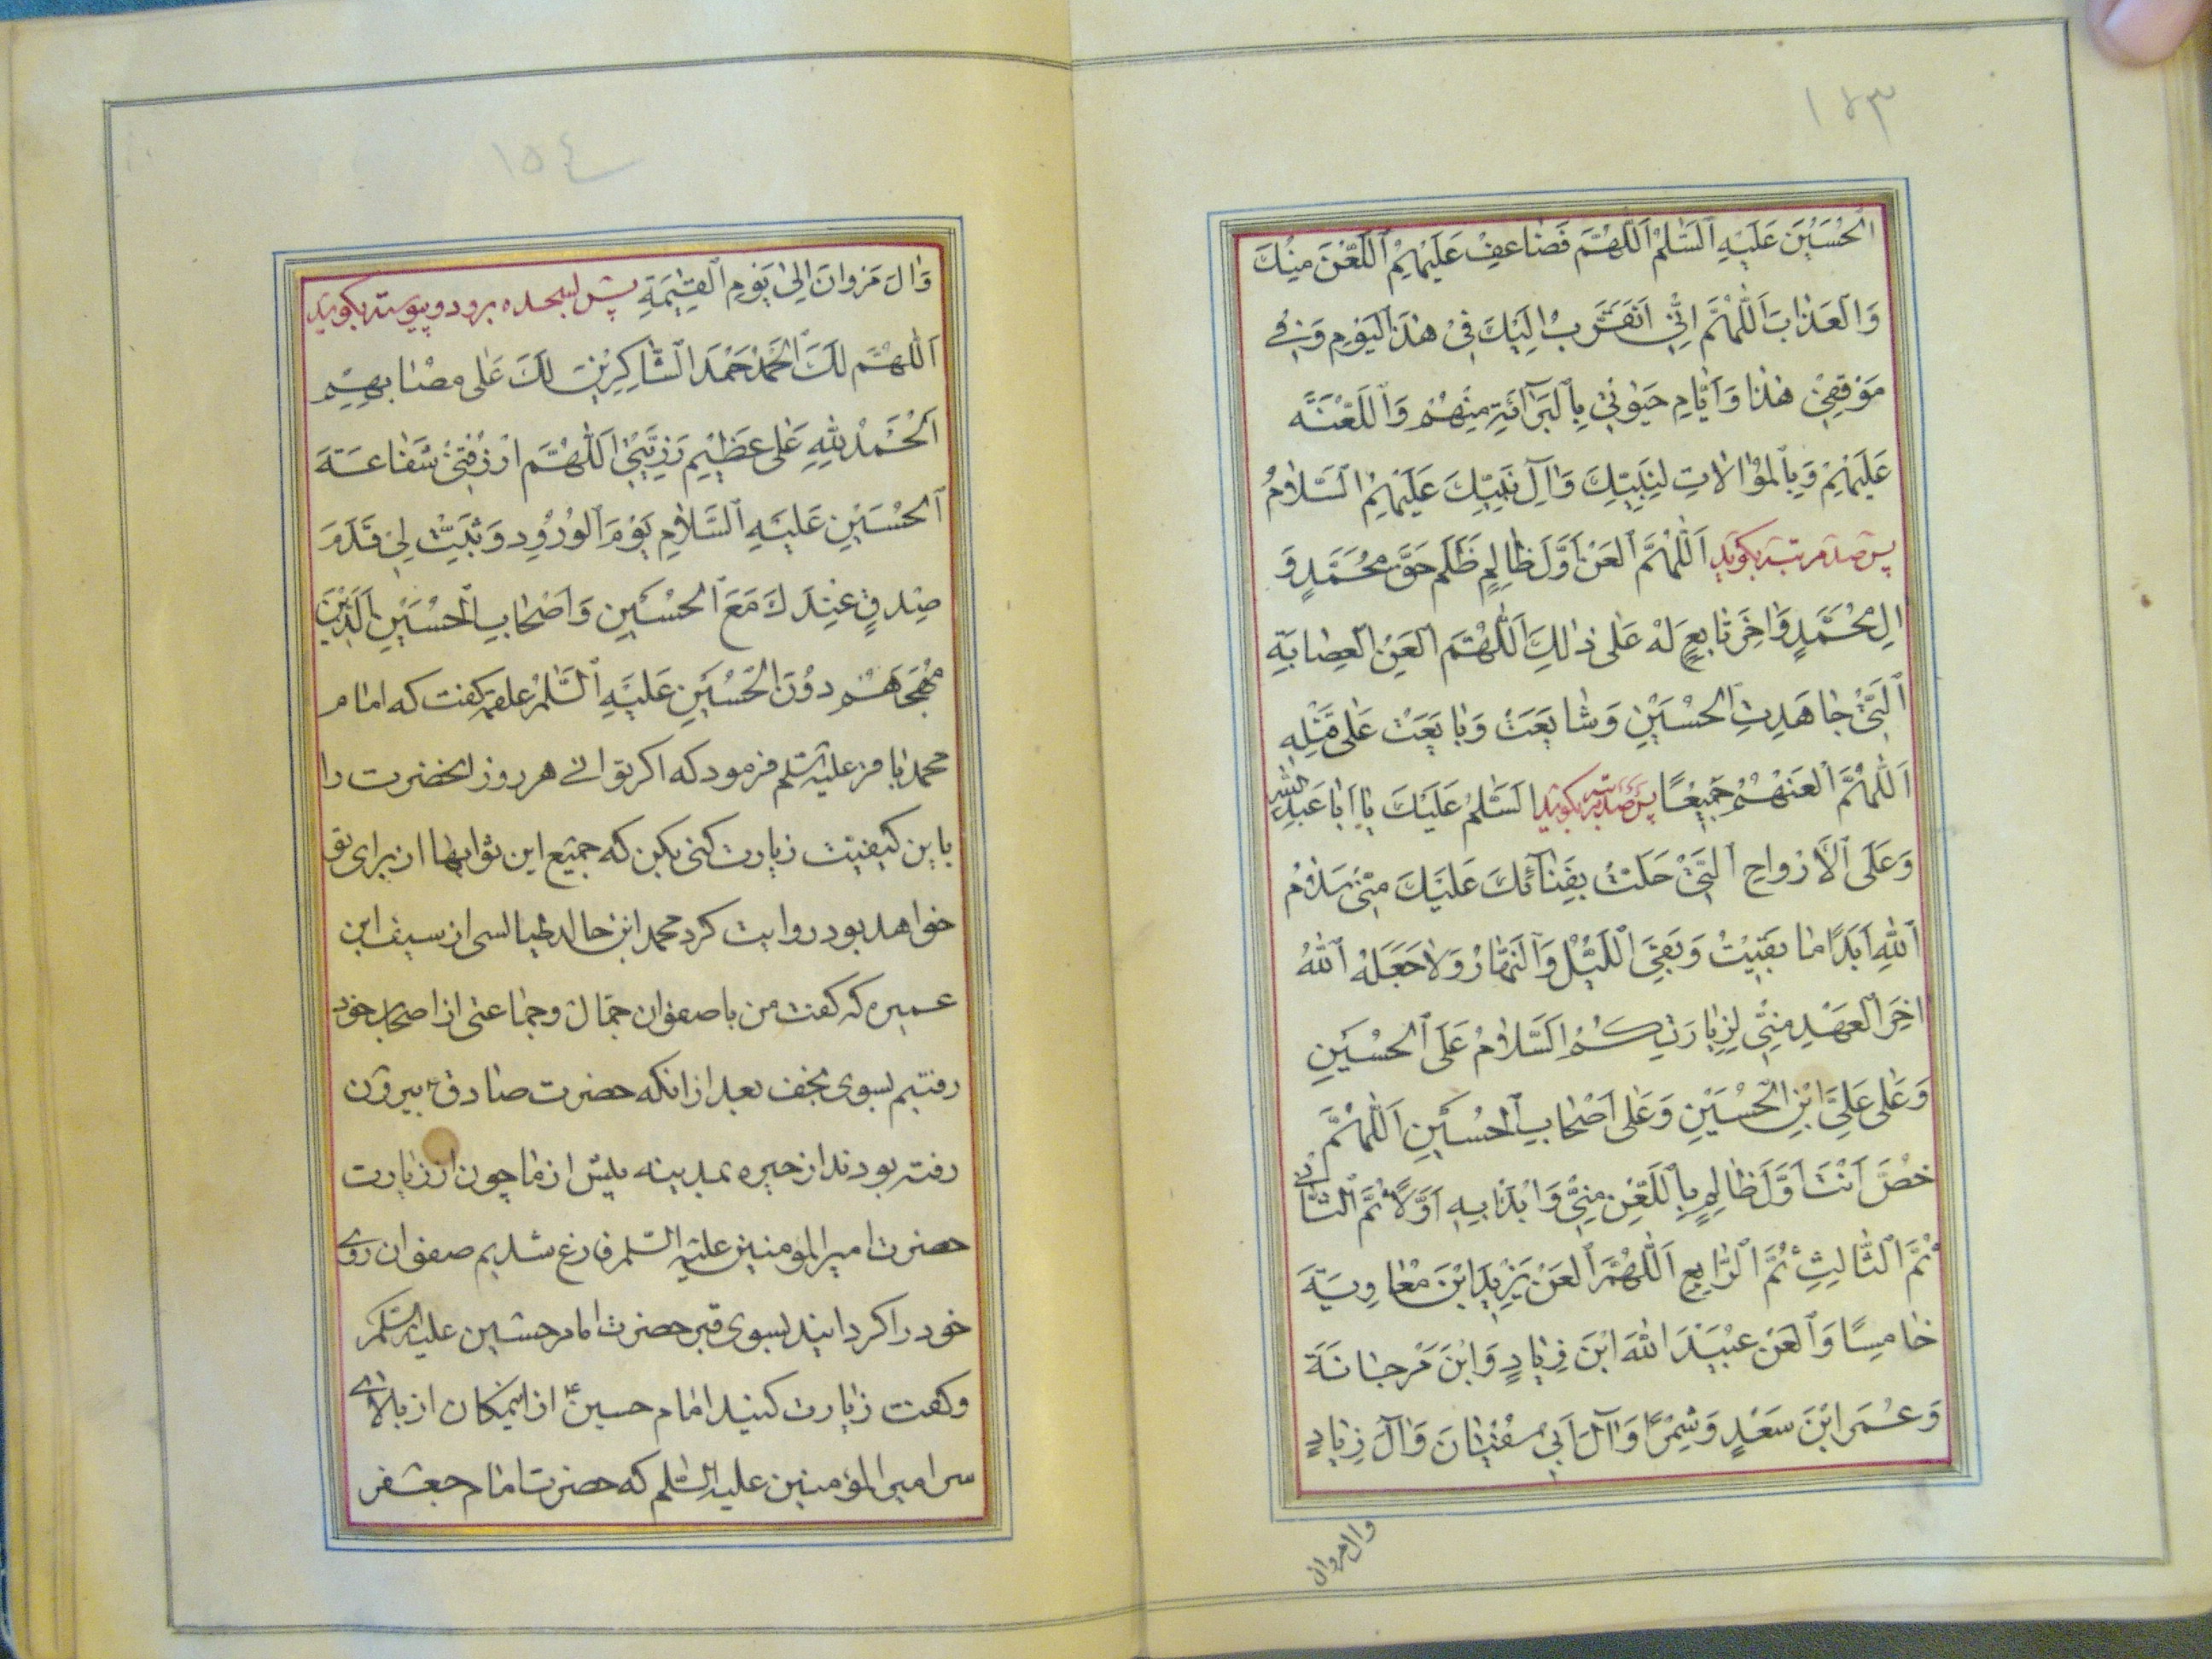 ١٥٣
الْحُسَيْنَ عَلَيْهِ السَّلٰمُ اَللّٰهُمَّ فَضٰاعِفْ عَلَيْهِمُ اللَّعْنَ مِنْكَ
وَالْعَذٰابَ اَللّٰهُمَّ اِنّٖي اَتَقَرَّبُ اِلَيْكَ فٖي هٰذَا الْيَوْمِ وَفٖي
مَوْقِفٖي هٰذٰا وَاَيّٰامِ حَيٰوتٖي بِالْبَرٰآئَةِ مِنْهُمْ وَاللَّعْنَةَ
عَلَيْهِمْ وَبِالْمُوٰالاتِ لِنَبِيِّكَ وَاٰلِ نَبِيِّكَ عَلَيْهِمُ السَّلٰامُ
پس صد مرتبه بكويد اَللّٰهُمَّ الْعَنْ اَوَّلَ ظٰالِمٍ ظَلَمَ حَقَّ مُحَمَّدٍ وَ
اٰلِ مُحَمَّدٍ وَاٰخِرَ تٰابِعٍ لَهُ عَلٰى ذٰلِكَ اَللّٰهُمَّ الْعَنِ الْعِصٰابَةِ
الَّتٖي جٰاهَدِتِ الْحُسَيْنِ وَشٰايَعَتْ وَبٰايَعَتْ عَلٰى قَتْلِهِ
اَللّٰهُمَّ الْعَنْهُمْ جَمٖيعًا پس صد مرتبه بكويد اَلسَّلٰمُ عَلَيْكَ يٰا اَبٰا عَبْدِ اللهِ
وَعَلَى الْاَرْوٰاحِ الَّتٖي حَلَّتْ بِفِنٰآئِكَ عَلَيْكَ مِنّٖي سَلٰامُ
اللهِ اَبَدًا مٰا بَقٖيتُ وَبَقِيَ اللَّيْلُ وَالنَّهٰارُ وَلٰا جَعَلَهُ اللهُ
اٰخِرَ الْعَهْدِ مِنّٖي لِزِيٰارَتِكُمْ اَلسَّلٰامُ عَلَى الْحُسَيْنِ
وَعَلٰى عَلِيِّ ابْنِ الْحُسَيْنِ وَعَلٰى اَصْحٰابِ الْحُسَيْنِ اَللّٰهُمَّ
خُصَّ اَنْتَ اَوَّلَ ظٰالِمٍ بِاللَّعْنِ مِنّٖي وَابْدَابِهِ اَوَّلًا ثُمَّ الثّٰانٖي
ثُمَّ الثّٰالِثِ ثُمَّ الرّٰابِعِ اَللّٰهُمَّ الْعَنْ يَزٖيدَ ابْنَ مُعٰاوِيَةَ
خٰامِسًا وَالْعَنْ عُبَيْدَ اللهَ ابْنَ زِيٰادٍ وَابْنَ مَرْجٰانَةَ
وَعُمَرَ ابْنَ سَعْدٍ وَشِمْرًا وَاٰلَ اَبٖي سُفْيٰانَ وَاٰلَ زِيٰادٍ
وال مروان
١٥٤
وَاٰلَ مَرْوانَ اِلىٰ يَوْمِ الْقِيٰمَةِ پس بسجده برود و پيوسته بكويد
اَللّٰهُمَّ لَكَ الْحَمْدُ حَمْدَ الشّٰاكِرٖينَ لَكَ عَلٰى مصٰابهِم
اَلْحَمْدُ لِلّٰهِ عَلٰى عَظٖيمِ رَزِيَّتٖي اَللّٰهُمَّ ارْزُقْنٖي شَفٰاعَةَ
الْحُسَيْنِ عَلَيْهِ السَّلٰامِ يَوْمَ الْوُرُوُدِ وَثَبِّتْ لٖي قَدَمَ
صِدْقٍ عِنْدَكَ مَعَ الْحُسَيْنِ وَاَصْحٰابِ الْحُسَيْنِ الَّذٖينَ
مُهَجَهُمْ دوُنَ الْحُسَيْنِ عَلَيْهِ السَّلٰمُ علقمه كفت كه امام
محمد باقر عليه السلم فرمود كه اكر توانى هر روز انحضرت را
باين كيفيت زيارت كنى بكن كه جميع اين ثوابها از براى تو
خواهد بود روايت كرد محمد ابن خالد طيالسى از سيف ابن
عميره كه كفت من با صفوان جمال و جماعتى از اصحاب خود
رفتيم بسوى نجف بعد از انكه حضرت صادق ع بيرون
رفته بودند از حيره بمدينه پيش از ما چون از زيارت
حضرت امير المومنين عليه السلم فارغ شديم صفوان روى
خود را كردانيد بسوى قبر حضرت امام حسين عليه السلم
و كفت زيارت كنيد امام حسين ع از اينمكان از بالاى
سر امير المؤمنين عليه السلم كه حضرت امام جعفر